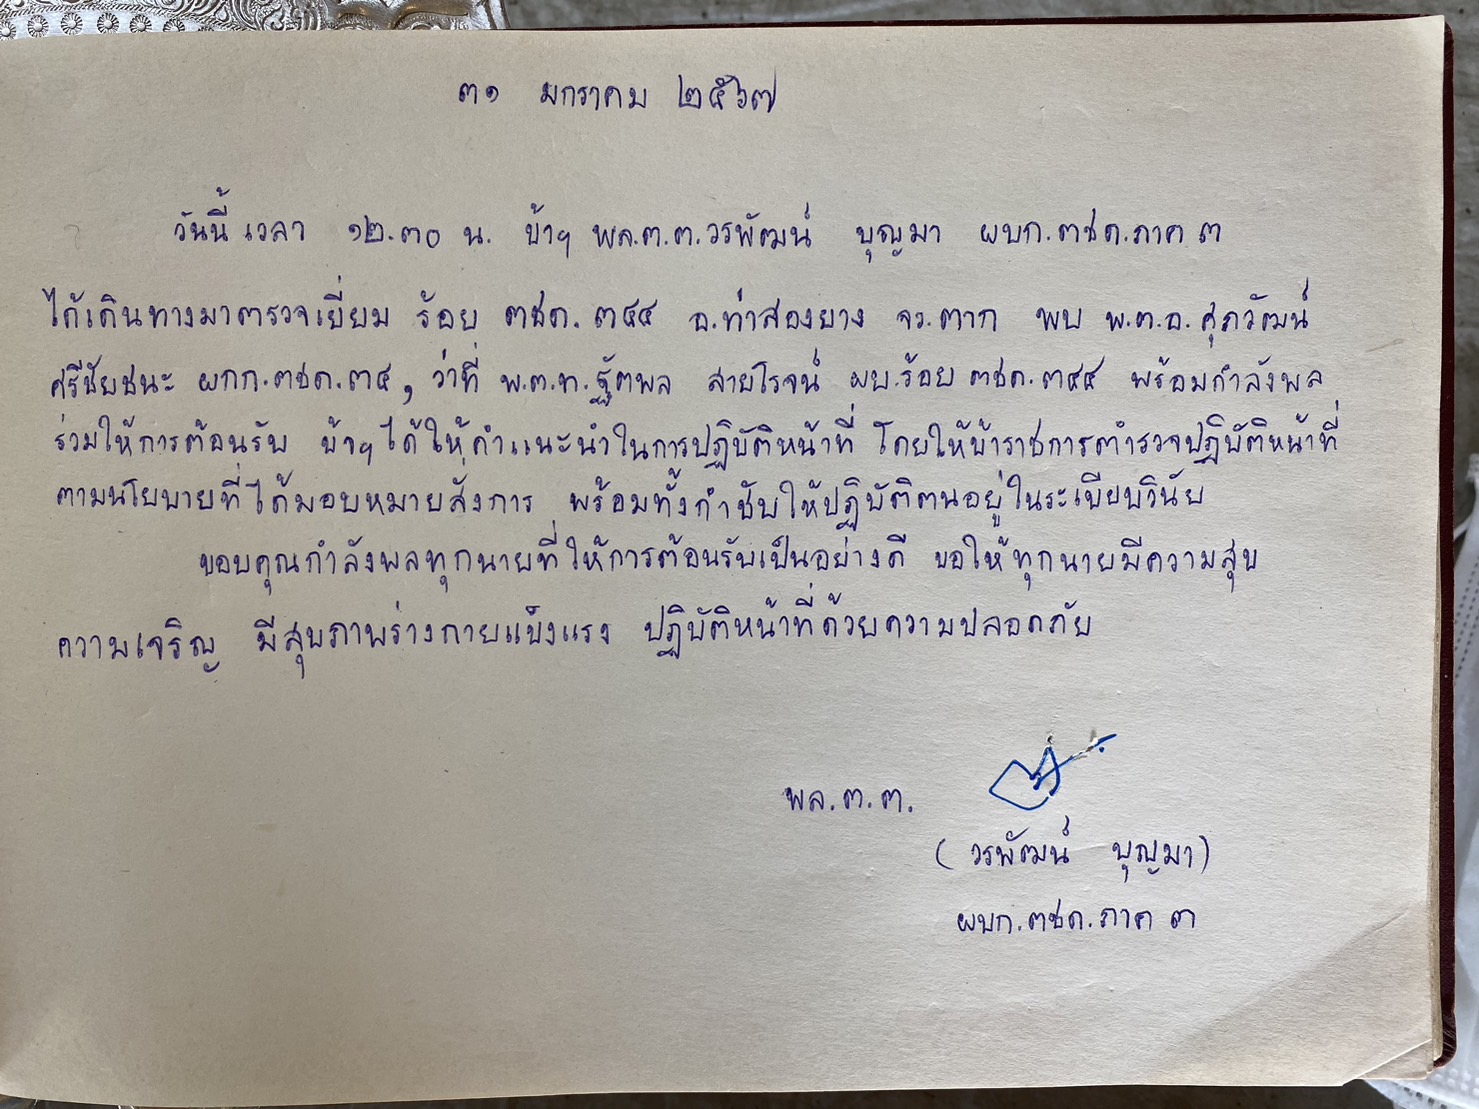 ๓๑ มกราคม ๒๕๖๗
วันนี้ เวลา ๑๒.๓๐ น. ข้าฯ พล.ต.ต.วรพัฒน์ บุญมา ผบก.ตชด.ภาค ๓
ได้เดินทางมาตรวจเยี่ยม ร้อย ตชด.๓๔๔ อ.ท่าสองยาง จว.ตาก พบ พ.ต.อ.ศุภวัฒน์
ศรีชัยชนะ ผกก.ตชด.๓๔, ว่าที่ พ.ต.ท.ฐัตพล สายโรจน์ ผบ.ร้อย ตชด.๓๔๔ พร้อมกำลังพล
ร่วมให้การต้อนรับ ข้าฯได้ให้คำแนะนำในการปฏิบัติหน้าที่ โดยให้ข้าราชการตำรวจปฏิบัติหน้าที่
ตามนโยบายที่ได้มอบหมายสั่งการ พร้อมทั้งกำชับให้ปฏิบัติตนอยู่ในระเบียบวินัย
ขอบคุณกำลังพลทุกนายที่ให้การต้อนรับเป็นอย่างดี ขอให้ทุกนายมีความสุข
ความเจริญ มีสุขภาพร่างกายแข็งแรง ปฏิบัติหน้าที่ด้วยความปลอดภัย
พล.ต.ต.
(วรพัฒน์ บุญมา)
ผบก.ตชด.ภาค ๓